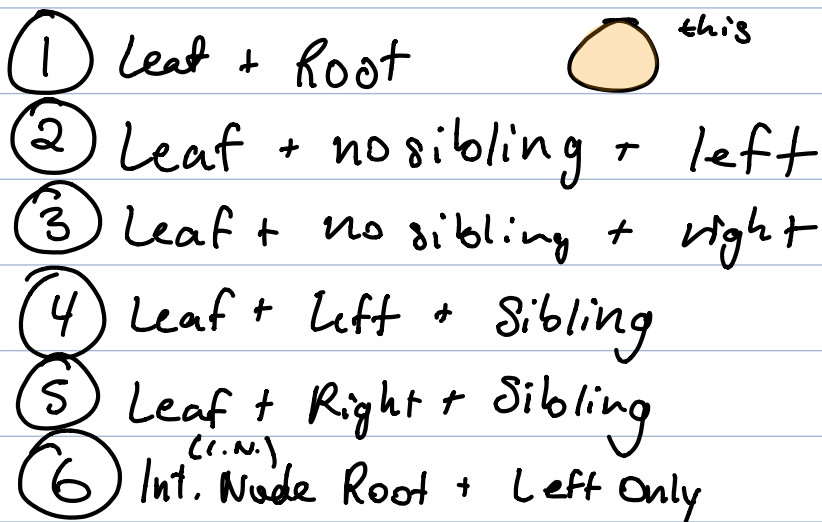 1 Leaf + Root this
2 Leaf + no sibling + left
3 Leaf + no sibling + right
4 Leaf + Left + Sibling
5 Leaf + Right + Sibling
(I.N.)
6 Int. Node Root + Left Only